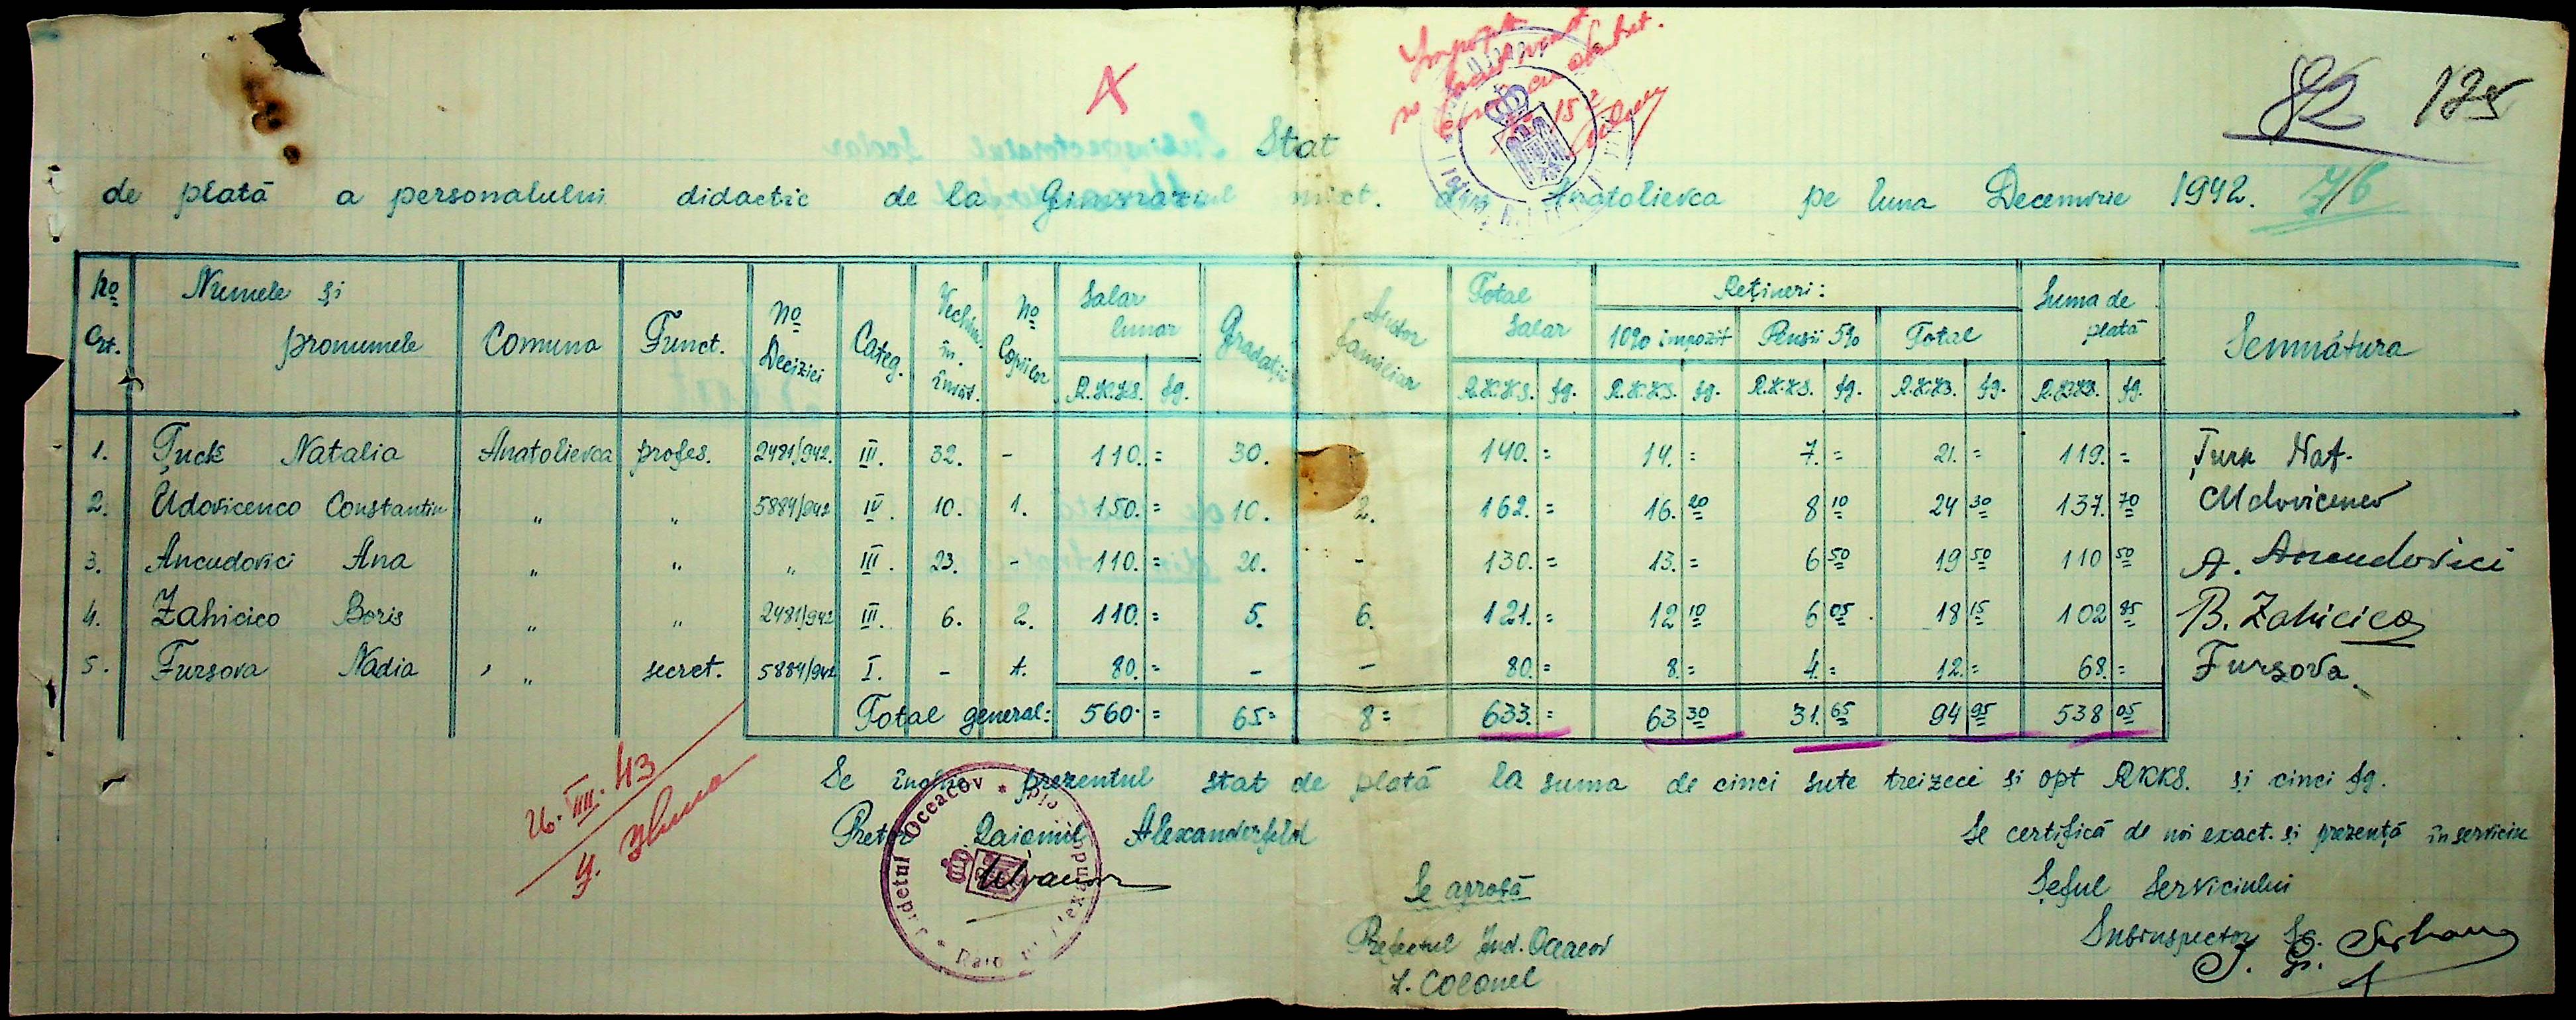 82 125
Stat
de plată a personalului didactic de la Gimnaziul mixt. din Anatolievca pe luna Decemvrie 1942. 7/6
No Crt. Numele și pronumele Comuna Funct. No Deciziei Categ. Vechim. în învăț. No Copiilor Salar lunar Gradații Ajutor familiar Total Salar Rețineri: Suma de plată Semnătura
10% impozit Pensii 5% Total
R.K.K.S. fg. R.K.K.S. fg. R.K.K.S. fg. R.K.K.S. fg. R.K.K.S. fg. R.K.K.S. fg.
1. Țuck Natalia Anatolievca profes. 2481/942. III. 32. - 110. = 30. 140. = 14. = 7. = 21. = 119. = Țurk Nat.
2. Udovicenco Constantin " " 5884/942 IV. 10. 1. 150. = 10. 2. 162. = 16. 20 8 10 24 30 137. 70
3. Ancudovici Ana " " " III. 23. - 110. = 20. - 130. = 13. = 6 50 19 50 110 50 A. Ancudovici
4. Zahicico Boris " " 2481/942 III. 6. 2. 110. = 5. 6. 121. = 12 10 6 05 18 15 102 85 B. Zahicico
5. Fursova Nadia " secret. 5884/942 I. - 1. 80. = - - 80. = 8. = 4. = 12. = 68. = Fursova.
Total general: 560. = 65 = 8 = 633. = 63 30 31. 65 94 95 538 05
Se închie prezentul stat de plată la suma de cinci sute treizeci și opt RKKS. și cinci fg.
26. III. 43
Pretor Raionul Alexanderfeld
Județul Oceacov
Se certifică de noi exact. și prezență în serviciu
Se aprobă
Șeful Serviciului
Prefectul Jud. Oceacov
Subinspector Șc.
Lt. Colonel